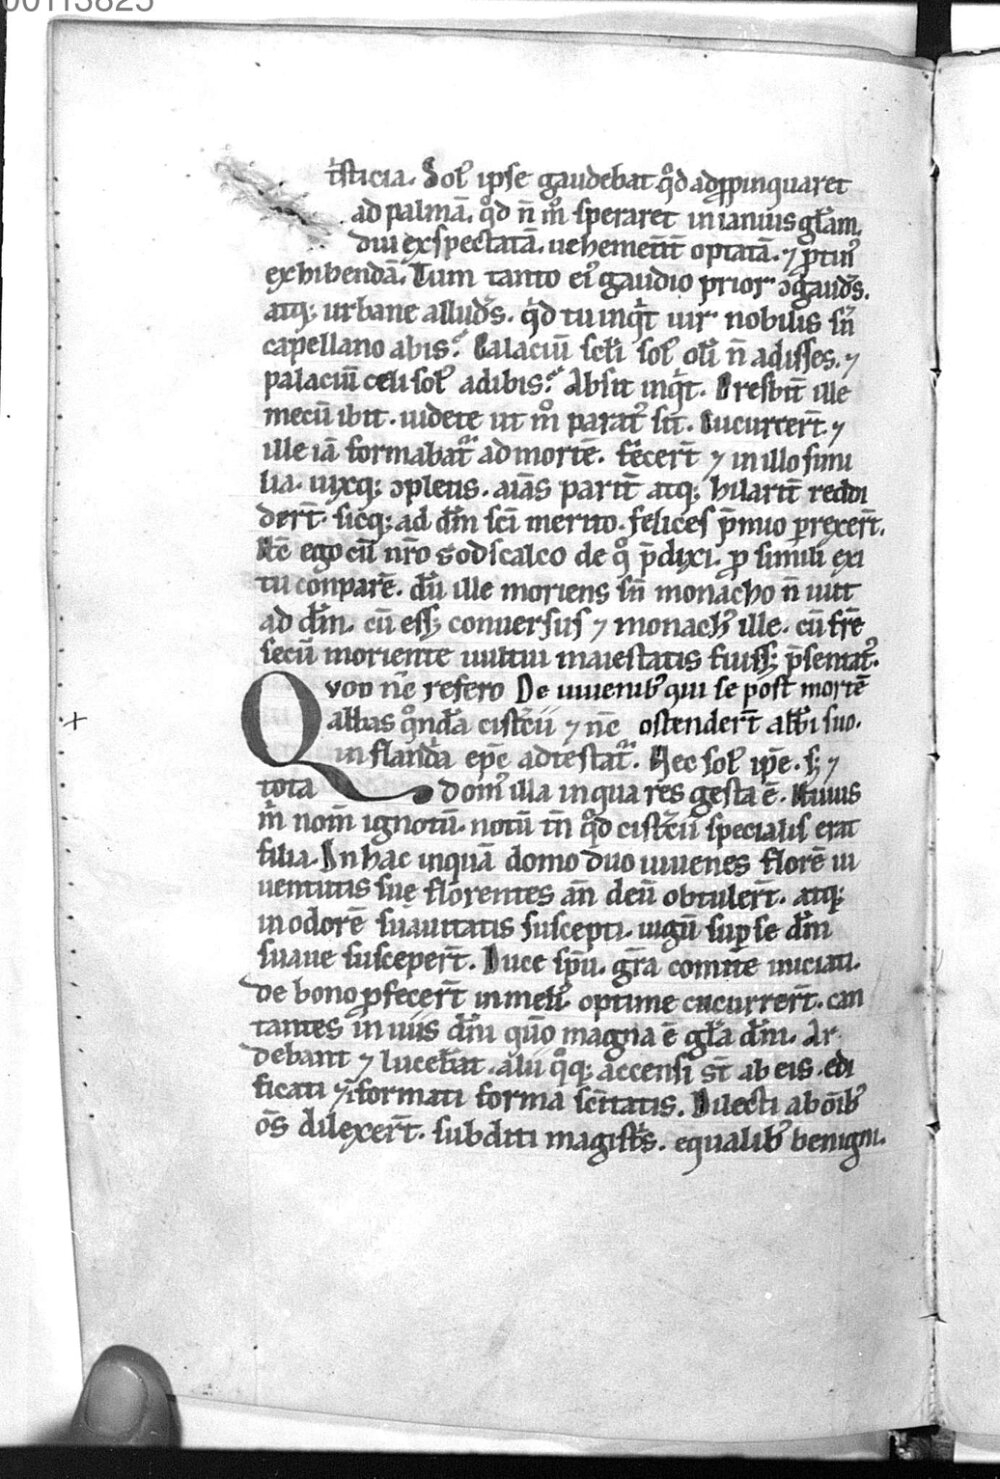 00113825
t̾sticia. Sol᾽ ipse gaudebat qͦd adp̱pinquaret
ad palmā. qͦd n̄ mͦ speraret in ianuis gl̄am.
diu exspectatā. uehementt̄ optatā. ⁊ ꝓtin᾽
exhibendā. Tum tanto ei᾽ gaudio prior ɔgaud̾s.
atq; urbane allud̾s. qͥd tu inqͥt uir nobilis sn̄
capellano abis? Palaciū scl̄i sol᾽ oli n̄ adisses. ⁊
palaciū celi sol᾽ adibis? Absit inqͥt. Presbit̄ ille
mecū ibit. uidete ut mͦ parat᾽ sit. Cucurrert̄. ⁊
ille iā formabat᾽ ad mortē. fecert̄ ⁊ in illo simi
lia. uixq; ɔpletis. aīas parit̄ atq; hilarit̄ reddi
dert̄. sicq; ad dn̄m sci merito. felices p̄mio perrexert̄.
Nc̄ ego cū nr̄o godscalco de qͦ p̄dixi. ꝓ simili exi
tu conparē. dū ille moriens sn̄ monacho n̄ iuit
ad dn̄m. cū ess; conuersus ⁊ monach᾽ ille. cū fr̄e
secū moriente uultui maiestatis fuiss; p̄sentat᾽.
Qvod nc̄ refero De iuuenib᾽ qui se post mortē
abbas qͦnda cist̄cii ⁊ nc̄ ostendert̄ abb̄i suo.
in flandͥa ep̄c adtestat᾽. Nec sol᾽ ip̄e. s; ⁊
tota dom᾽ illa in qua res gesta ē. Huius
m̄ nom̄ ignotū. notū tn̄ qͦd cist̄cii specialis erat
filia. In hac inquā domo duo iuuenes florē iu
uentutis suę florentes an̄ deū obtulert̄. atq;
in odorē suauitatis suscepti. iugū sup se dn̄i
suaue suscepert̄. Duce sp̄u. gr̄a comite iniciati.
de bono ꝓfecert̄ in meli᾽. optime cucurrert̄. can
tantes in uiis dn̄i qm̄o magna ē gl̄a dn̄i. Ar
debant ⁊ lucebāt. alii qͦq; accensi st̄ ab eis. edi
ficati ⁊ īformati forma sc̄itatis. Dilecti ab oīb᾽
os̄ dilexert̄. subditi magist̄s. equalib᾽ benigni.